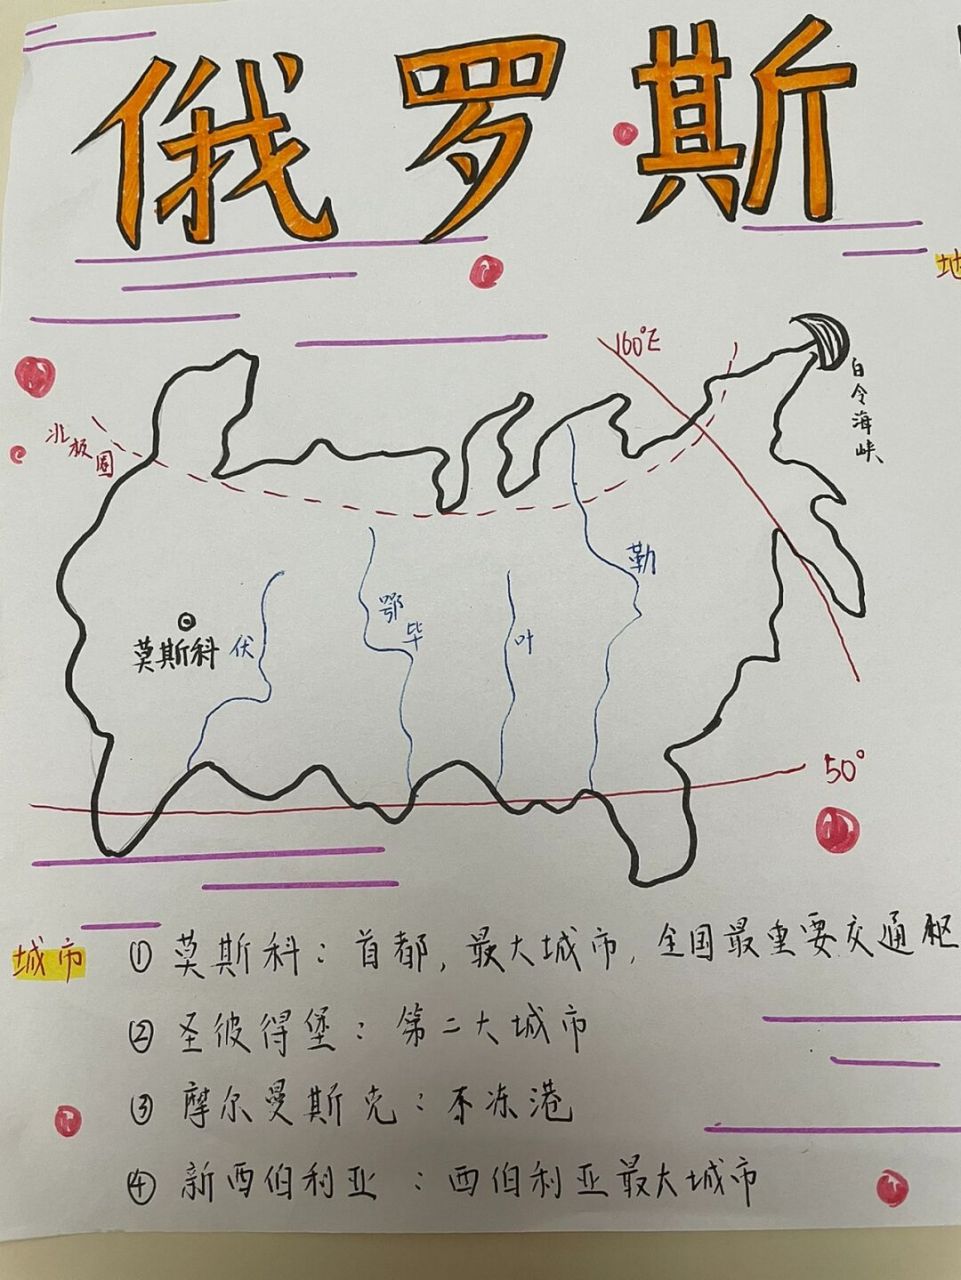 俄罗斯
地
160°E
白令海峡
北极圈
勒
鄂毕
叶
伏
莫斯科
50°
城市 ① 莫斯科：首都，最大城市，全国最重要交通枢
② 圣彼得堡：第二大城市
③ 摩尔曼斯克：不冻港
④ 新西伯利亚：西伯利亚最大城市